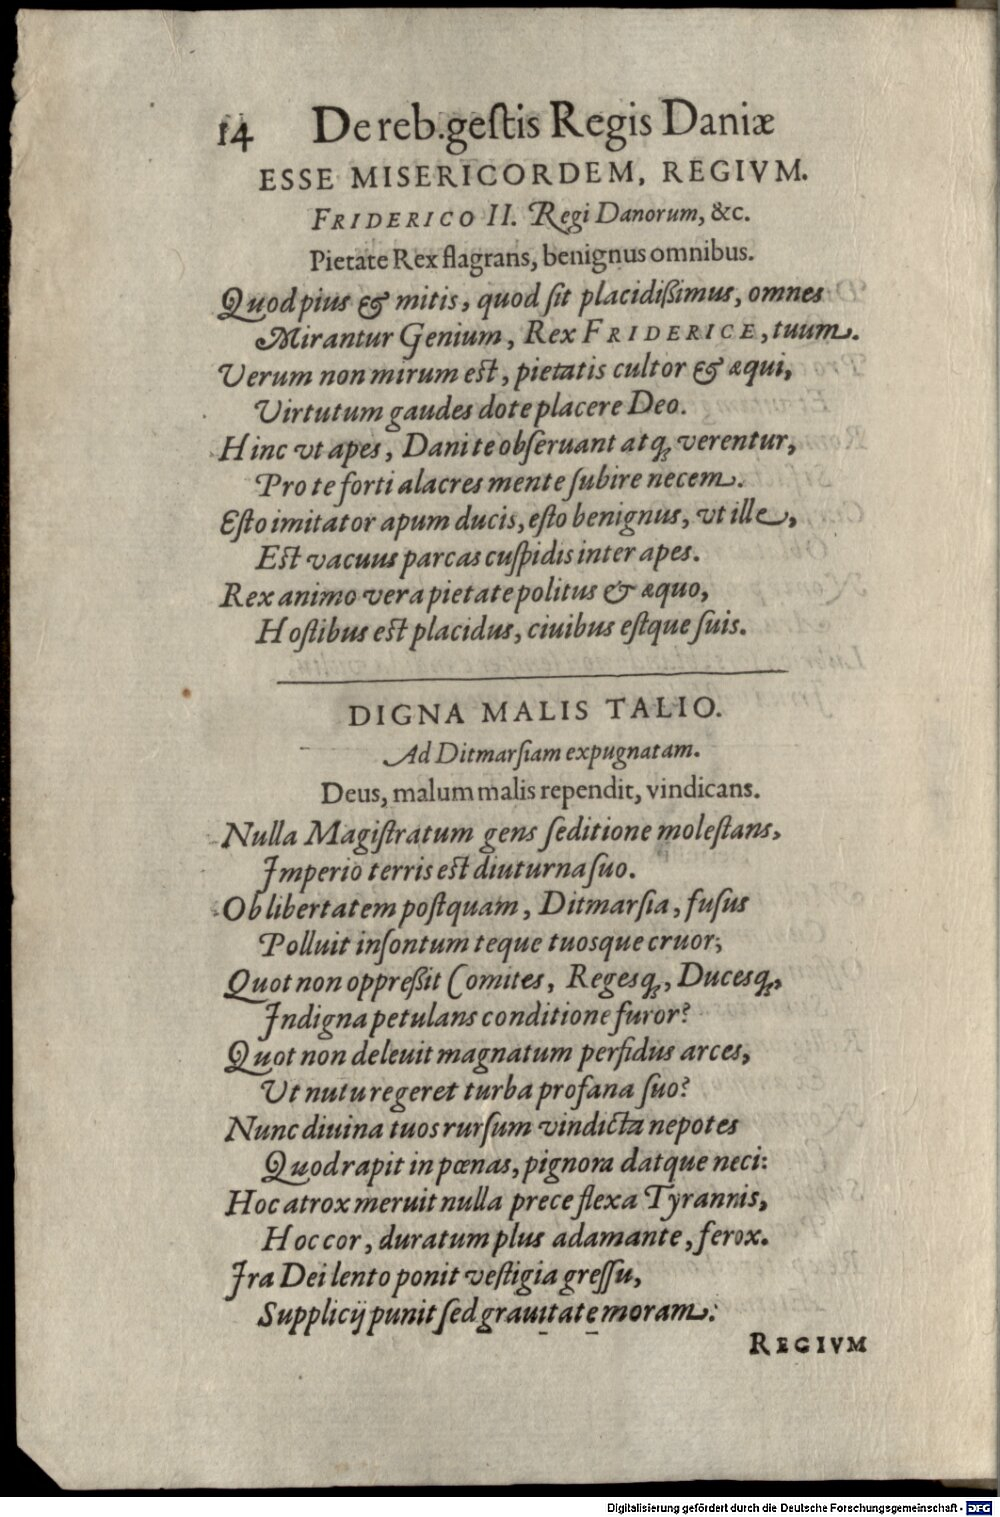 14 De reb. gestis Regis Daniæ
ESSE MISERICORDEM, REGIVM.
FRIDERICO II. Regi Danorum, &c.
Pietate Rex flagrans, benignus omnibus.
Quod pius & mitis, quod ſit placidißimus, omnes
Mirantur Genium, Rex FRIDERICE, tuum.
Verum non mirum est, pietatis cultor & æqui,
Virtutum gaudes dote placere Deo.
Hinc vt apes, Dani te obſeruant atq; verentur,
Pro te forti alacres mente ſubire necem.
Eſto imitator apum ducis, eſto benignus, vt ille,
Est vacuus parcas cuſpidis inter apes.
Rex animo vera pietate politus & æquo,
Hoſtibus est placidus, ciuibus eſtque ſuis.
DIGNA MALIS TALIO.
Ad Ditmarſiam expugnatam.
Deus, malum malis rependit, vindicans.
Nulla Magiſtratum gens ſeditione moleſtans,
Imperio terris est diuturna ſuo.
Ob libertatem poſtquam, Ditmarſia, fuſus
Polluit inſontum teque tuosque cruor;
Quot non oppreßit Comites, Regesq;, Ducesq;,
Indigna petulans conditione furor?
Quot non deleuit magnatum perfidus arces,
Ut nutu regeret turba profana ſuo?
Nunc diuina tuos rurſum vindicta nepotes
Quod rapit in pœnas, pignora datque neci:
Hoc atrox meruit nulla prece flexa Tyrannis,
Hoc cor, duratum plus adamante, ferox.
Ira Dei lento ponit veſtigia greſſu,
Supplicij punit ſed grauitate moram:
REGIVM
Digitalisierung gefördert durch die Deutsche Forschungsgemeinschaft - DFG